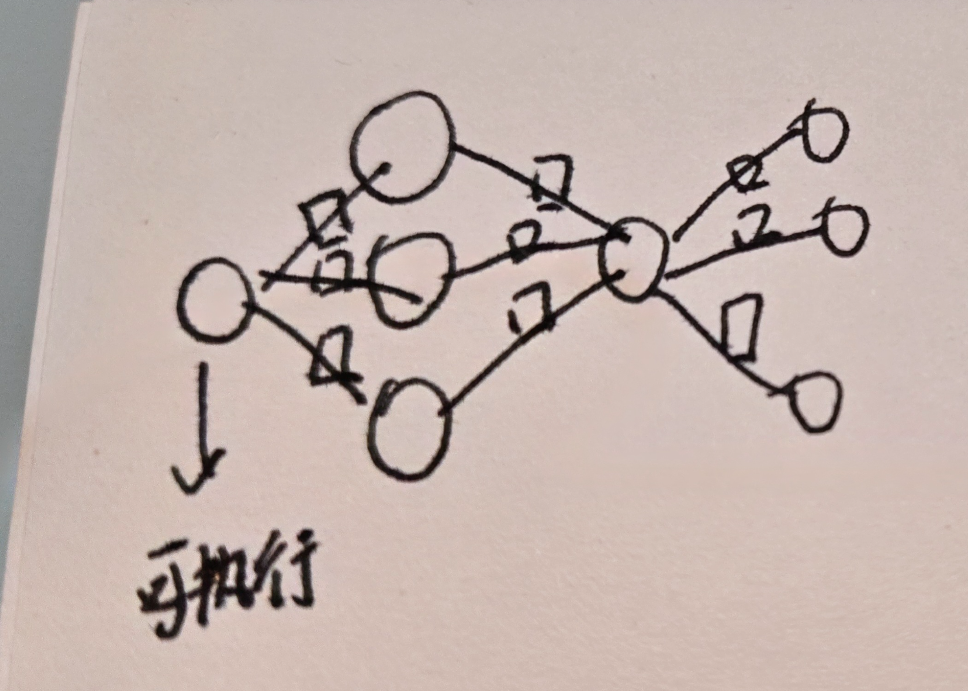 可执行